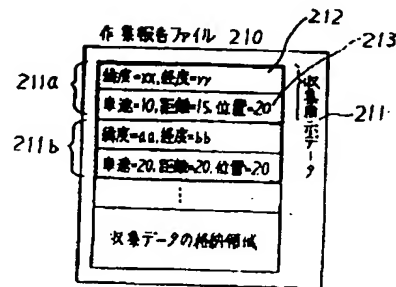 作業報告ファイル 210
212
213
211a
緯度=xx, 経度=yy
車速=10, 距離=15, 位置=20
211b
緯度=aa, 経度=bb
車速=20, 距離=20, 位置=20
⋮
収集データの格納領域
収集指示データ
211